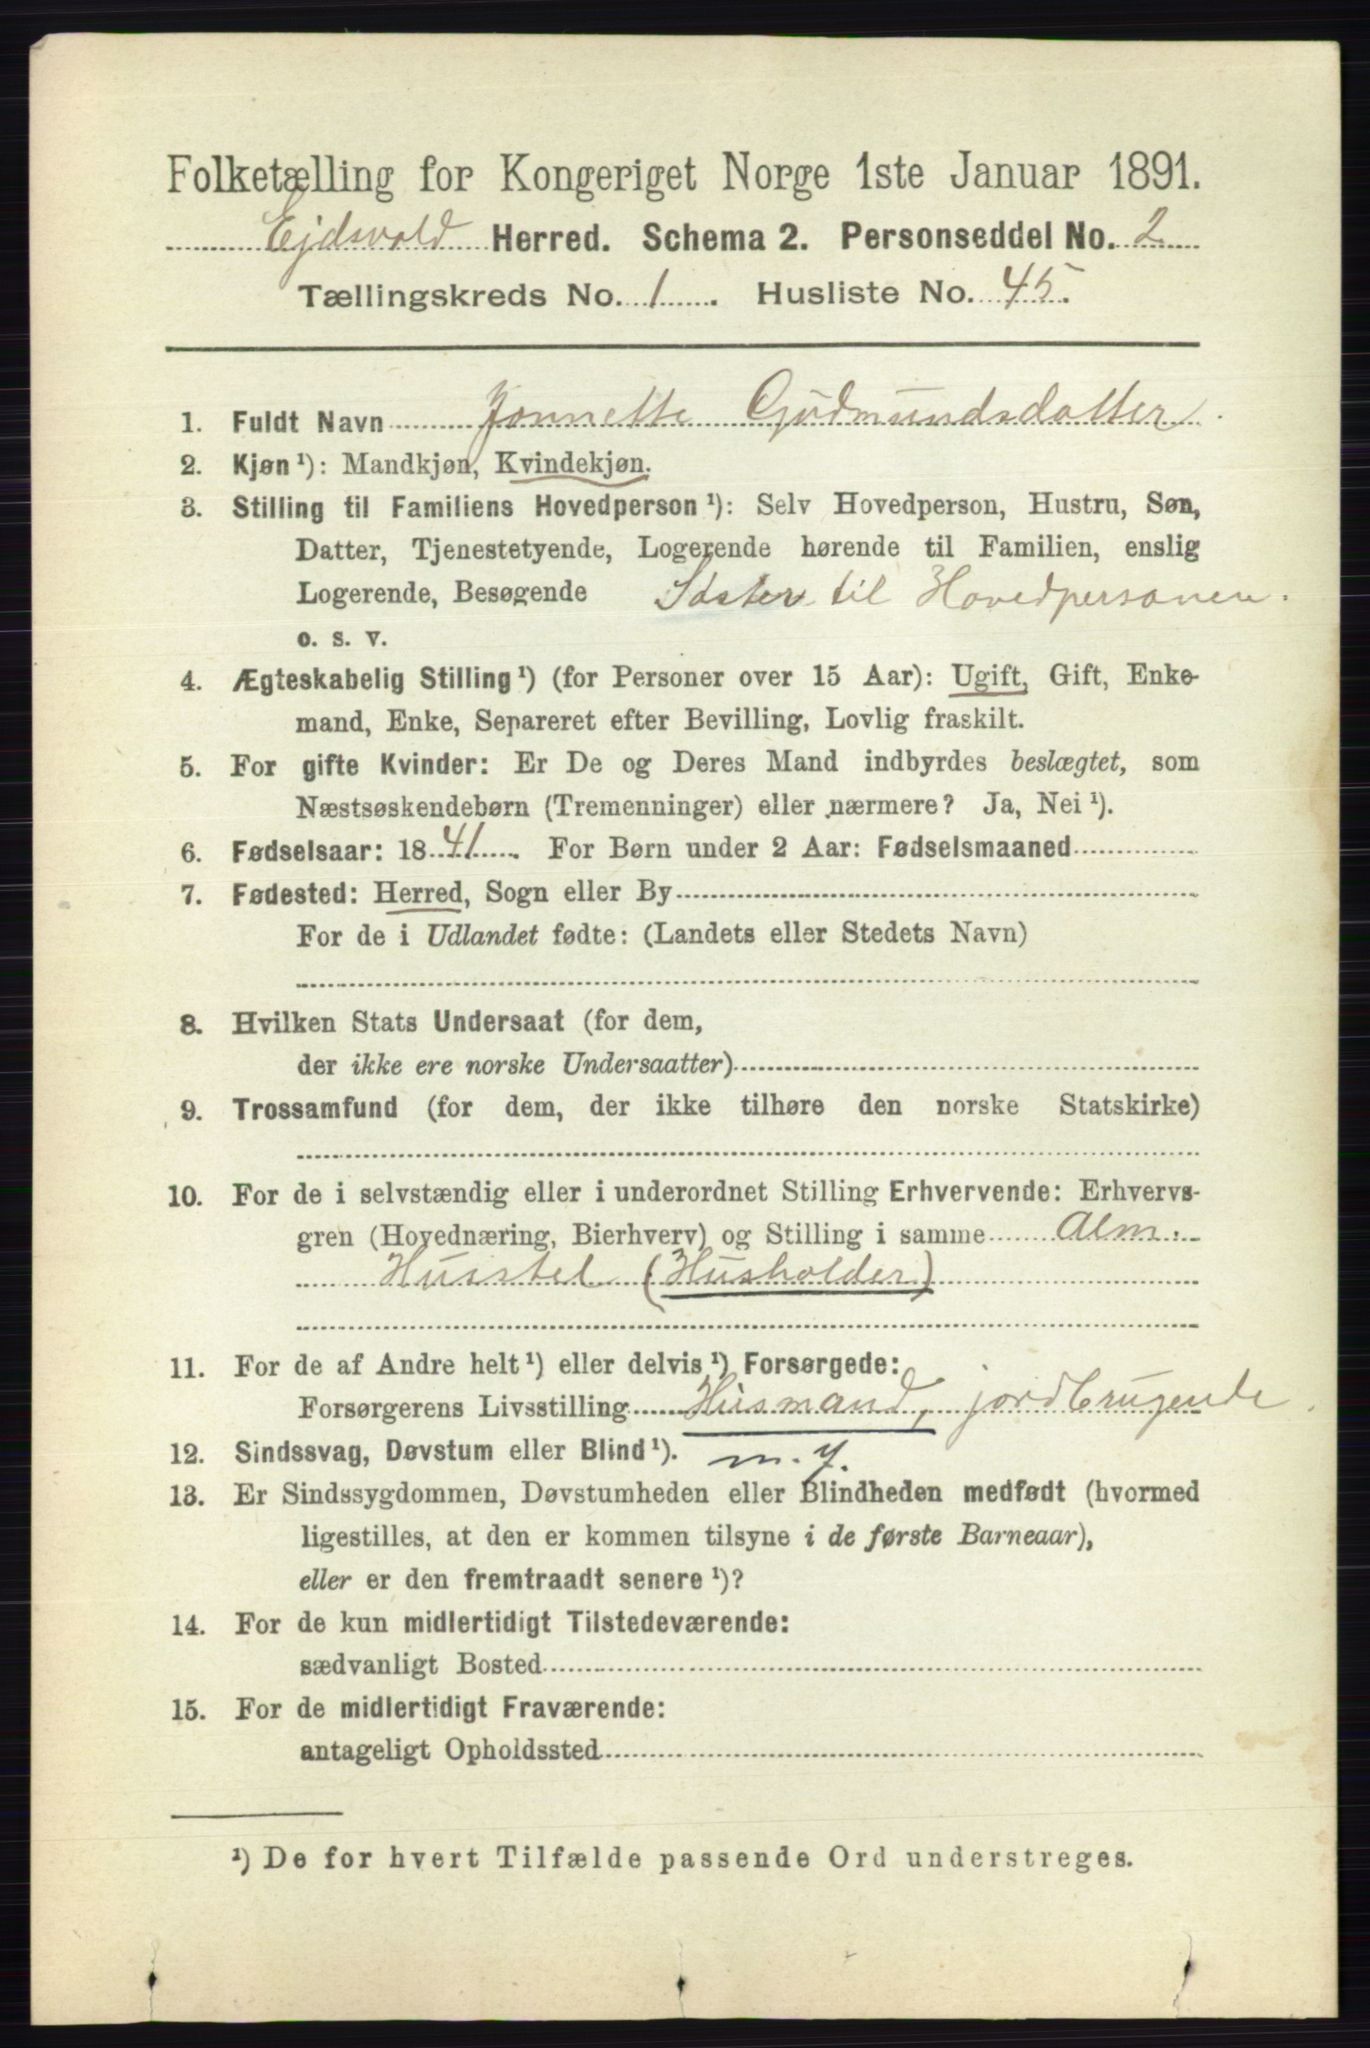 Folketælling for Kongeriget Norge 1ste Januar 1891.
Ejdsvold Herred. Schema 2. Personseddel No. 2
Tællingskreds No. 1. Husliste No. 45.
1. Fuldt Navn Jonnette Gudmundsdatter.
2. Kjøn ¹): Mandkjøn, Kvindekjøn.
3. Stilling til Familiens Hovedperson ¹): Selv Hovedperson, Hustru, Søn,
Datter, Tjenestetyende, Logerende hørende til Familien, enslig
Logerende, Besøgende Søster til Hovedpersonen.
o. s. v.
4. Ægteskabelig Stilling ¹) (for Personer over 15 Aar): Ugift, Gift, Enke-
mand, Enke, Separeret efter Bevilling, Lovlig fraskilt.
5. For gifte Kvinder: Er De og Deres Mand indbyrdes beslægtet, som
Næstsøskendebørn (Tremenninger) eller nærmere? Ja, Nei ¹).
6. Fødselsaar: 1841. For Børn under 2 Aar: Fødselsmaaned
7. Fødested: Herred, Sogn eller By
For de i Udlandet fødte: (Landets eller Stedets Navn)
8. Hvilken Stats Undersaat (for dem,
der ikke ere norske Undersaatter)
9. Trossamfund (for dem, der ikke tilhøre den norske Statskirke)
10. For de i selvstændig eller i underordnet Stilling Erhvervende: Erhvervs-
gren (Hovednæring, Bierhverv) og Stilling i samme Alm.
Huustel (Husholder)
11. For de af Andre helt ¹) eller delvis ¹) Forsørgede:
Forsørgerens Livsstilling Husmand, jordbrugende.
12. Sindssvag, Døvstum eller Blind ¹).
13. Er Sindssygdommen, Døvstumheden eller Blindheden medfødt (hvormed
ligestilles, at den er kommen tilsyne i de første Barneaar),
eller er den fremtraadt senere ¹)?
14. For de kun midlertidigt Tilstedeværende:
sædvanligt Bosted
15. For de midlertidigt Fraværende:
antageligt Opholdssted
¹) De for hvert Tilfælde passende Ord understreges.